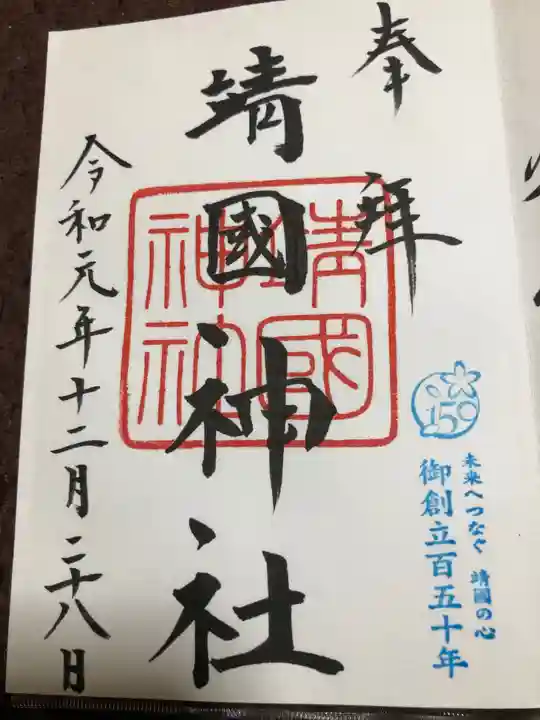 奉拝
靖國神社
靖國
神社
令和元年十二月二十八日
150
未来へつなぐ 靖國の心
御創立百五十年